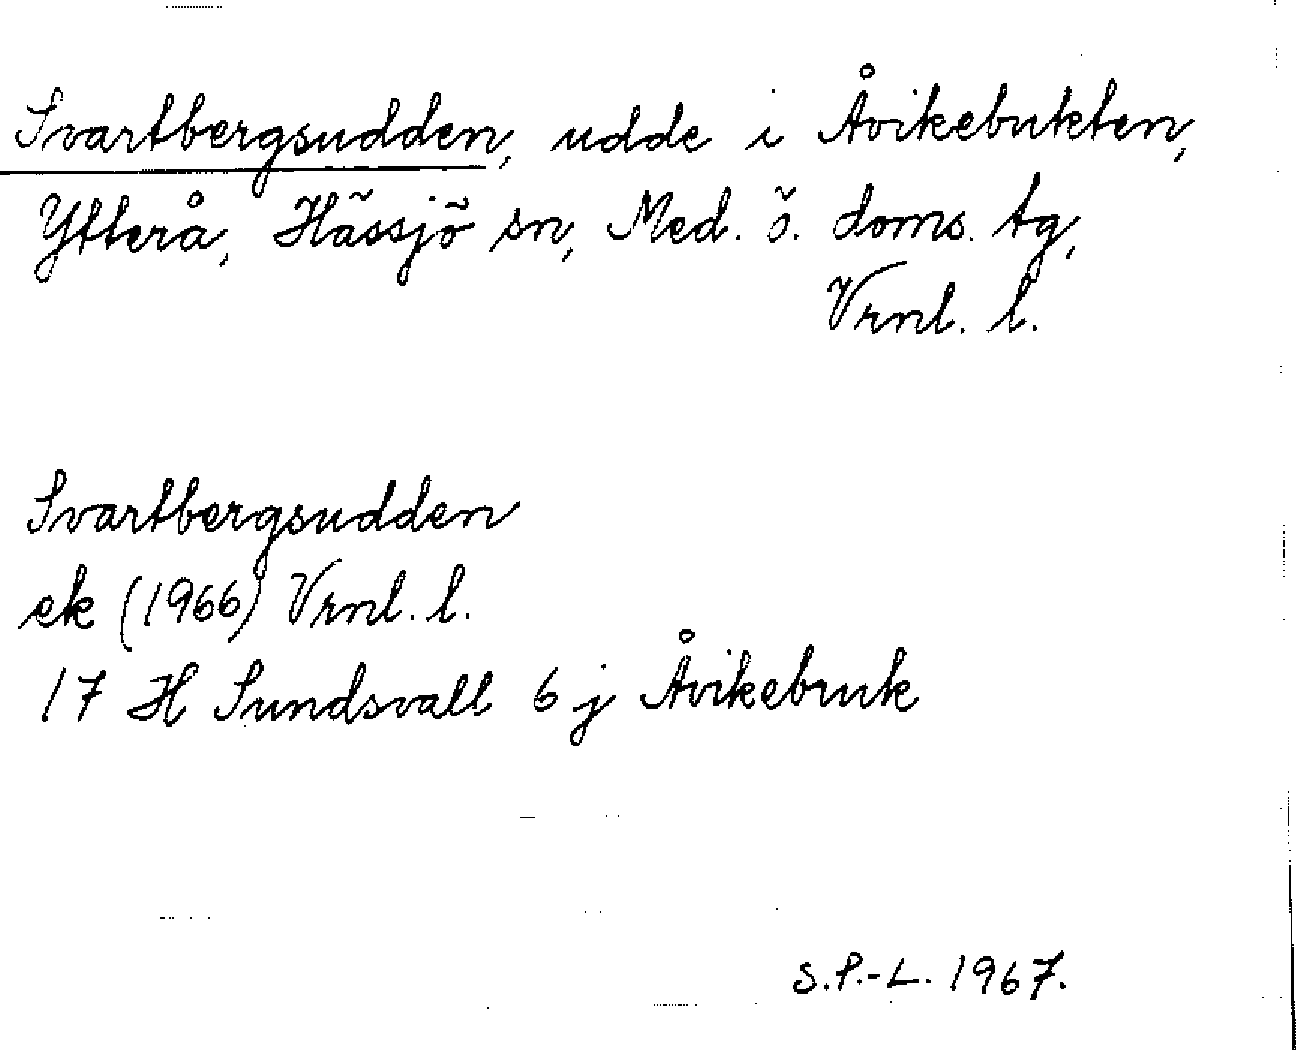 Svartbergsudden, udde i Åvikebukten,
Ytterå, Hässjö sn, Med. ö. doms. tg,
Vrnl. l.
Svartbergsudden
ek (1966) Vrnl. l.
17 H Sundsvall 6 j Åvikebruk
S.P.-L. 1967.